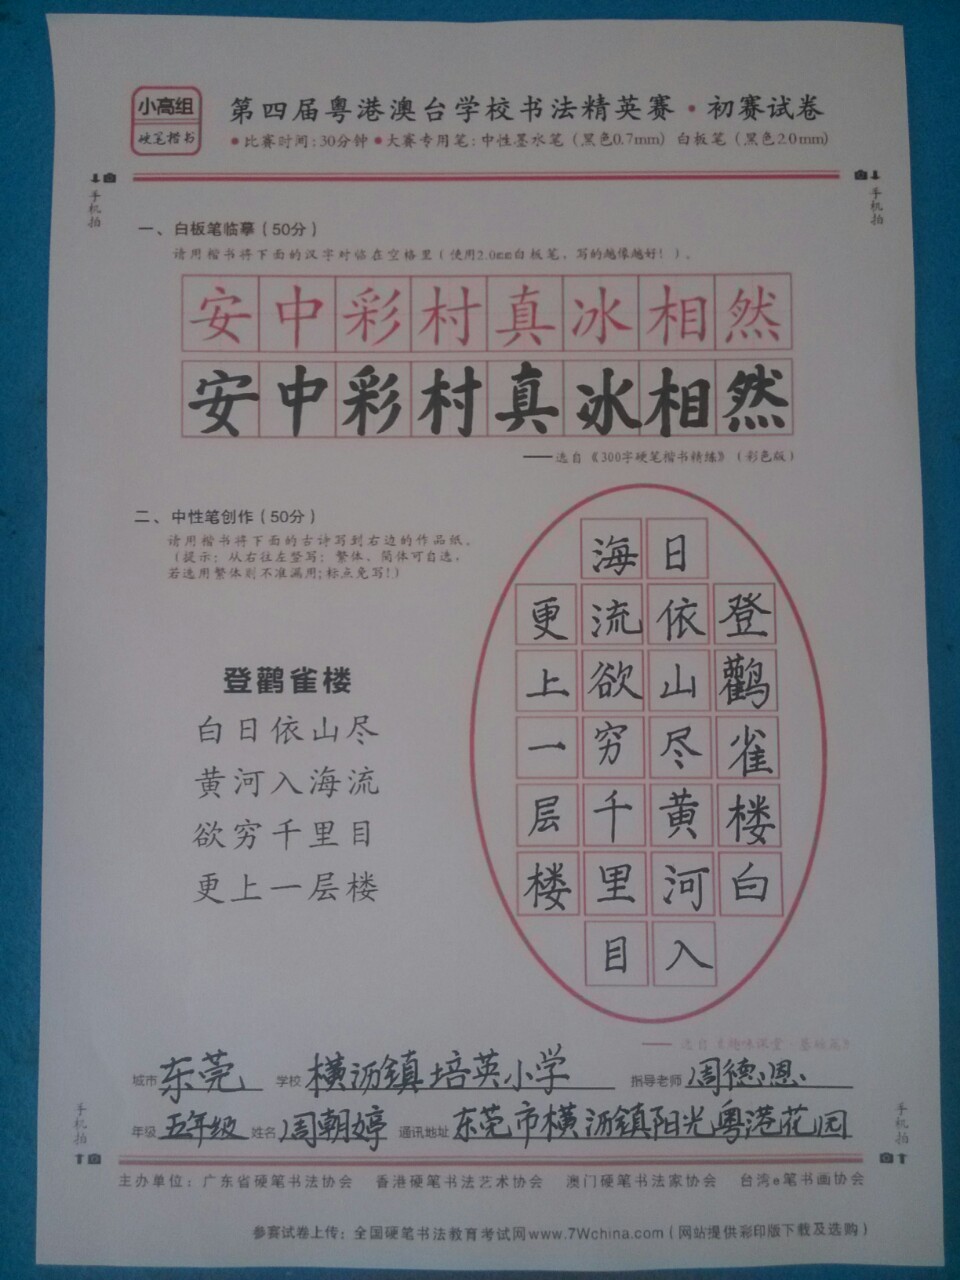 小高组
硬笔楷书
第四届粤港澳台学校书法精英赛·初赛试卷
●比赛时间:30分钟 ●大赛专用笔:中性墨水笔(黑色0.7mm) 白板笔(黑色2.0mm)
手机拍
手机拍
一、白板笔临摹(50分)
请用楷书将下面的汉字对临在空格里(使用2.0mm白板笔,写的越像越好!)。
安中彩村真冰相然
安中彩村真冰相然
——选自《300字硬笔楷书精练》(彩色版)
二、中性笔创作(50分)
请用楷书将下面的古诗写到右边的作品纸。
(提示:从右往左竖写;繁体、简体可自选,
若选用繁体则不准漏用;标点免写!)
登鹳雀楼
白日依山尽
黄河入海流
欲穷千里目
更上一层楼
登鹳雀楼白
日依山尽黄河入
海流欲穷千里目
更上一层楼
——选自《趣味课堂·基础篇》
城市 东莞 学校 横沥镇培英小学 指导老师 周德恩
年级 五年级 姓名 周朝婷 通讯地址 东莞市横沥镇阳光粤港花园
手机拍
手机拍
主办单位:广东省硬笔书法协会 香港硬笔书法艺术协会 澳门硬笔书法家协会 台湾e笔书画协会
参赛试卷上传:全国硬笔书法教育考试网www.7Wchina.com(网站提供彩印版下载及选购)